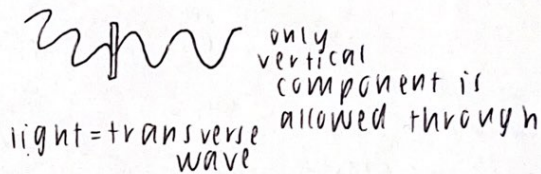 only
vertical
component is
allowed through
light = transverse
wave